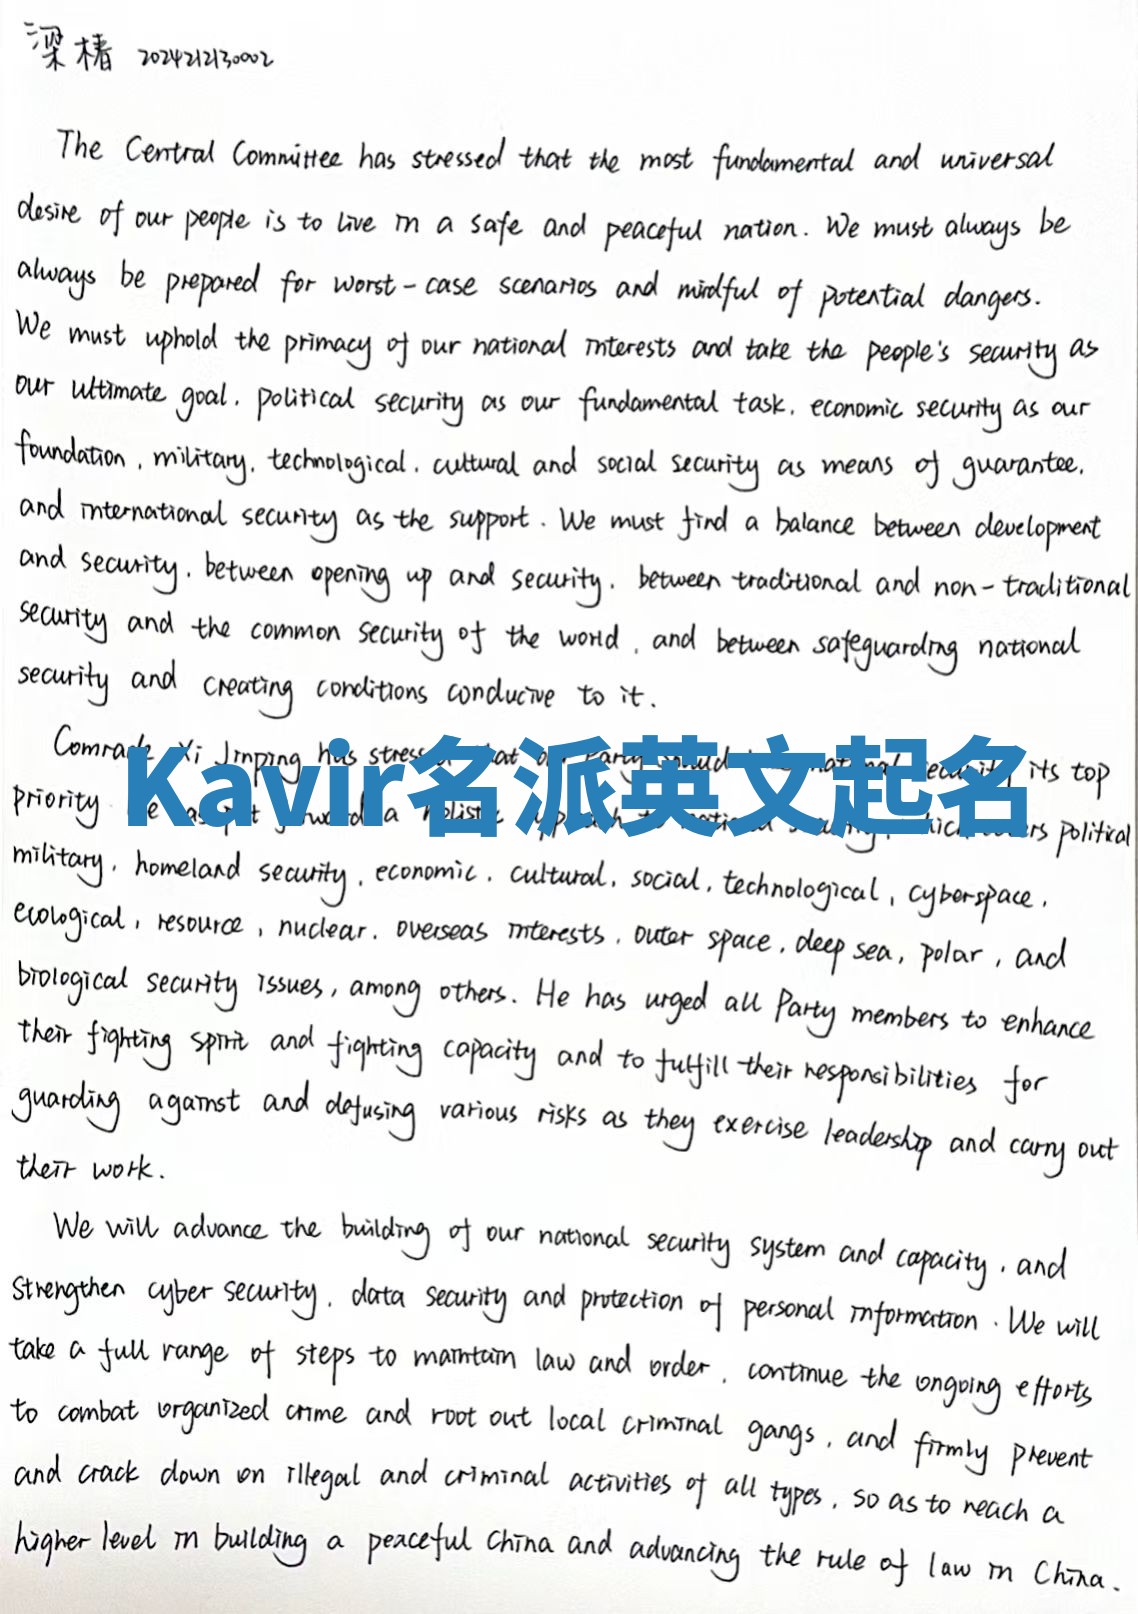 梁椿 2024212130002
The Central Committee has stressed that the most fundamental and universal
desire of our people is to live in a safe and peaceful nation. We must always be
always be prepared for worst-case scenarios and mindful of potential dangers.
We must uphold the primacy of our national interests and take the people's security as
our ultimate goal, political security as our fundamental task, economic security as our
foundation, military, technological, cultural and social security as means of guarantee,
and international security as the support. We must find a balance between development
and security, between opening up and security, between traditional and non-traditional
security and the common security of the world, and between safeguarding national
security and creating conditions conducive to it.
Comrade Xi Jinping has stressed that our Party its top
Kavir名派英文起名
priority a political
military, homeland security, economic, cultural, social, technological, cyberspace,
ecological, resource, nuclear, overseas interests, outer space, deep sea, polar, and
biological security issues, among others. He has urged all Party members to enhance
their fighting spirit and fighting capacity and to fulfill their responsibilities for
guarding against and defusing various risks as they exercise leadership and carry out
their work.
We will advance the building of our national security system and capacity, and
strengthen cyber security, data security and protection of personal information. We will
take a full range of steps to maintain law and order, continue the ongoing efforts
to combat organized crime and root out local criminal gangs, and firmly prevent
and crack down on illegal and criminal activities of all types, so as to reach a
higher level in building a peaceful China and advancing the rule of law in China.